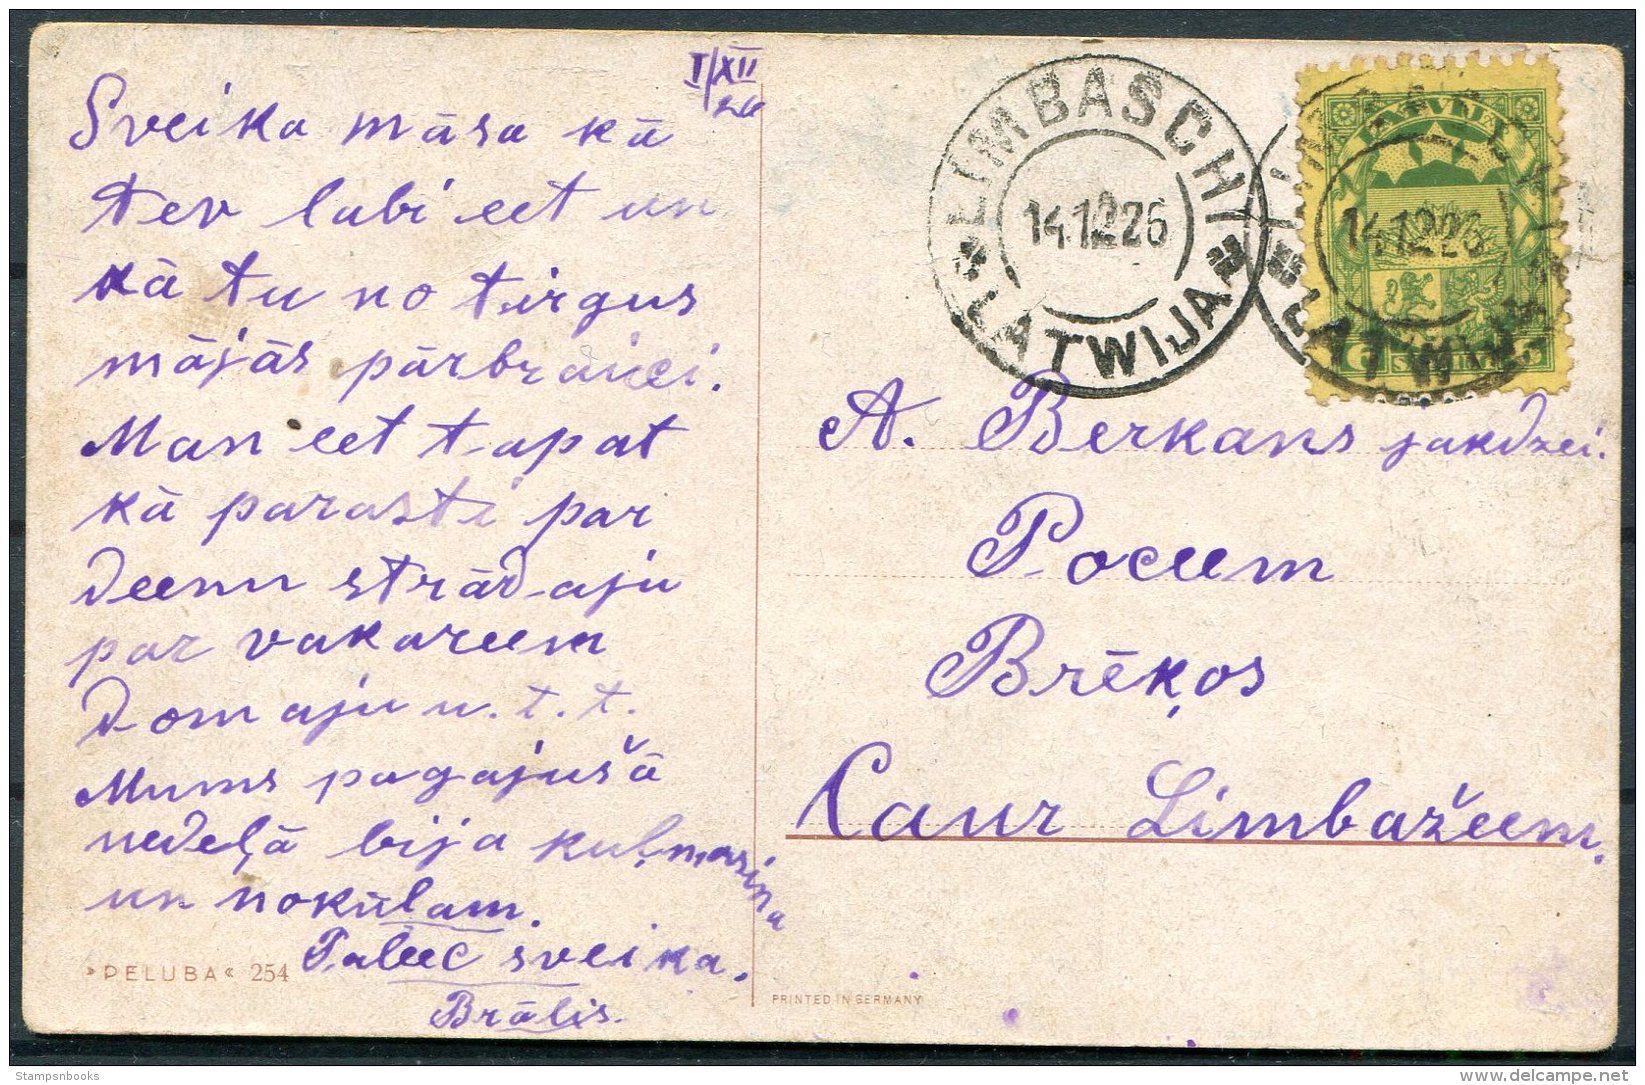 I/XII
26
Sveika māsa kā
tev labi eet un
kā tu no tirgus
mājās pārbrauci.
Man eet tapat
kā parasti par
deenu strādaju
par vakareem
domaju u.t.t.
Mums pagajušā
nedeļā bija kuļmasina
un nokūlam.
Paleec sveika.
Brālis.
»PELUBA« 254
PRINTED IN GERMANY
LIMBASCHI
14.12.26
LATWIJA
14.12.26
LATWIJA
LATVIJA
6 6
A. Berkans jaukdzei.
Poceem
Brēķos
Caur Limbažeem.
Stampsnbooks
www.delcampe.net